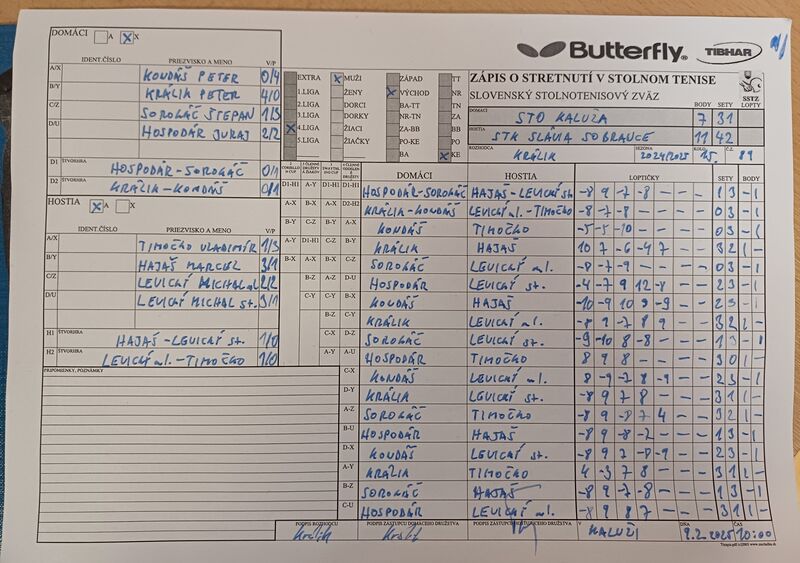 DOMÁCI A X
Butterfly
TIBHAR
IDENT.ČÍSLO PRIEZVISKO A MENO V/P
A/X KONDÁŠ PETER 0/4
B/Y KRÁLIK PETER 4/0
C/Z SOROKÁČ ŠTEPAN 1/3
D/U HOSPODÁR JURAJ 2/2
D1 ŠTVORHRA HOSPODÁR-SOROKÁČ 0/1
D2 KRÁLIK-KONDÁŠ 0/1
HOSTIA A X
IDENT.ČÍSLO PRIEZVISKO A MENO V/P
A/X TIMOČKO VLADIMÍR 1/3
B/Y HAJAŠ MARCEL 3/1
C/Z LEVICKÝ MICHAL ml. 2/2
D/U LEVICKÝ MICHAL st. 3/1
H1 ŠTVORHRA HAJAŠ-LEVICKÝ st. 1/0
H2 LEVICKÝ ml.-TIMOČKO 1/0
PRIPOMIENKY, POZNÁMKY
EXTRA MUŽI ZÁPAD TT
1.LIGA ŽENY VÝCHOD NR
2.LIGA DORCI BA-TT TN
3.LIGA DORKY NR-TN ZA
4.LIGA ŽIACI ZA-BB BB
5.LIGA ŽIAČKY PO-KE PO
BA KE
ZÁPIS O STRETNUTÍ V STOLNOM TENISE
SLOVENSKÝ STOLNOTENISOVÝ ZVÄZ
SSTZ
BODY SETY
DOMÁCI STO KALUŽA 7 31
HOSTIA STK SLÁVIA SOBRANCE 11 42
ROZHODCA KRÁLIK SEZÓNA 2024/2025 15. Č.Z. 89
DOMÁCI HOSTIA LOPTIČKY SETY BODY
D1-H1 HOSPODÁR-SOROKÁČ HAJAŠ-LEVICKÝ st. -8 9 -7 -8 — 1 3 — 1
D2-H2 KRÁLIK-KONDÁŠ LEVICKÝ ml.-TIMOČKO -8 -7 -8 — — 0 3 — 1
A-X KONDÁŠ TIMOČKO -5 -5 -10 — — 0 3 — 1
B-Y KRÁLIK HAJAŠ 10 7 -6 -4 7 3 2 1 —
C-Z SOROKÁČ LEVICKÝ ml. -8 -7 -9 — — 0 3 — 1
D-U HOSPODÁR LEVICKÝ st. -4 -7 9 12 -8 2 3 — 1
B-X KONDÁŠ HAJAŠ -10 -9 10 9 -9 2 3 — 1
C-Y KRÁLIK LEVICKÝ ml. -8 9 -7 8 9 3 2 1 —
D-Z SOROKÁČ LEVICKÝ st. -9 -10 8 -8 — 1 3 — 1
A-U HOSPODÁR TIMOČKO 8 9 8 — — 3 0 1 —
C-X KONDÁŠ LEVICKÝ ml. 8 -9 -7 8 -9 2 3 — 1
D-Y KRÁLIK LEVICKÝ st. -8 9 7 8 — 3 1 1 —
A-Z SOROKÁČ TIMOČKO -8 9 -8 7 4 3 2 1 —
B-U HOSPODÁR HAJAŠ -8 9 -8 -2 — 1 3 — 1
D-X KONDÁŠ LEVICKÝ st. -8 9 7 -8 -9 2 3 — 1
A-Y KRÁLIK TIMOČKO 4 -3 7 8 — 3 1 1 —
B-Z SOROKÁČ HAJAŠ -8 9 -7 -8 — 1 3 — 1
C-U HOSPODÁR LEVICKÝ ml. -8 9 8 7 — 3 1 1 —
PODPIS ROZHODCU PODPIS ZÁSTUPCU DOMÁCEHO DRUŽSTVA PODPIS ZÁSTUPCU HOSŤUJÚCEHO DRUŽSTVA V KALUŽI DŇA 9.2.2025 ČAS 10:00
Králik